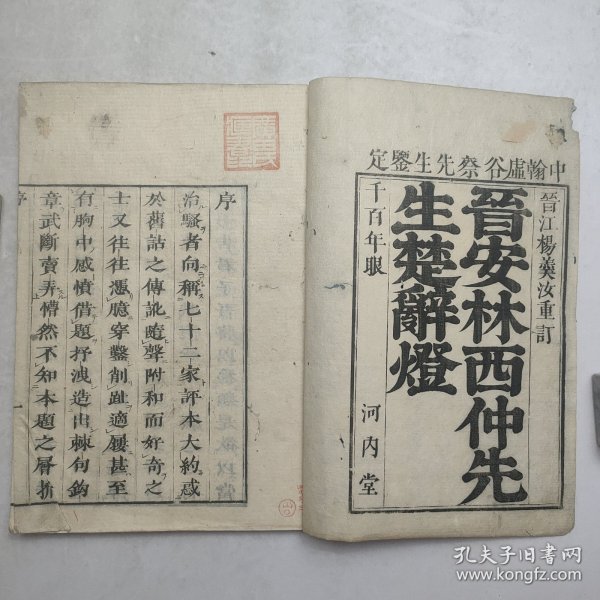 中翰虛谷蔡先生鑒定
晉江楊羹汝重訂
晉安林西仲先
生楚辭燈
千百年眼
河内堂
序
治騷者向稱七十二家評本大約惑
於舊詁之傳訛隨聲附和而好奇之
士又往往憑臆穿鑿削趾適屨甚至
有胸中感憤借題抒洩造出棘句鉤
章武斷賣弄懵然不知本題之層折
序
孔夫子旧书网
www.kongfz.com